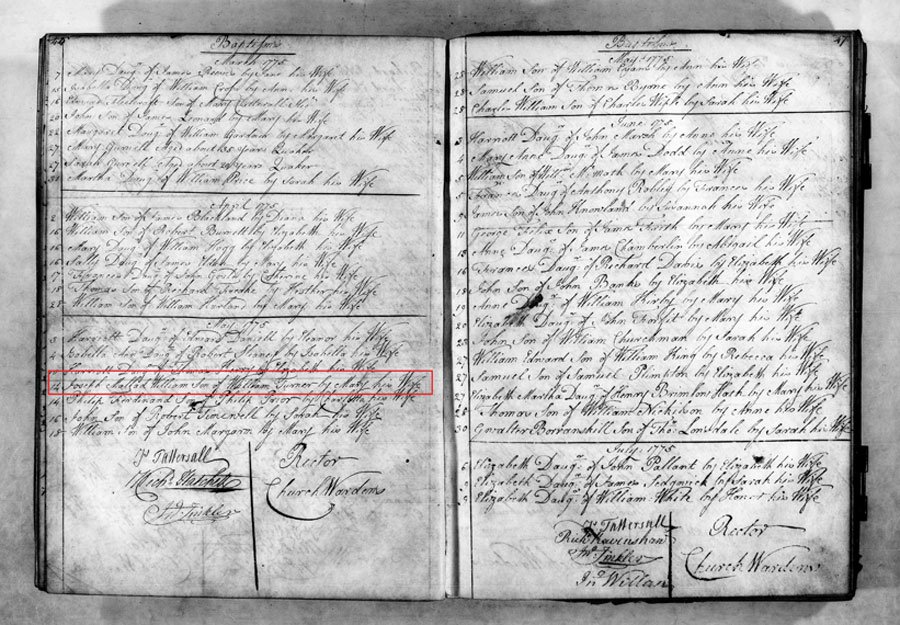 46
Baptism
March 1775
Mary Daug.r of James by Jane his Wife
15 Isabella Daug.r of William by Ann his Wife
16 Son of Mary
20 John Son of James Lenard by Mary his Wife
22 Margaret Daug.r of William by Margaret his Wife
27 Mary Gurnell Aged about years Quaker
27 Sarah Gurnell Aged about years Quaker
31 Martha Daug.r of William Price by Sarah his Wife
April 1775
2 William Son of James Blickland by Diana his Wife
16 William Son of Robert Burnell by Elizabeth his Wife
16 Mary Daug.r of William Hogg by Elizabeth his Wife
16 Sally Daug.r of James by Mary his Wife
17 Frances Daug.r of John Gould by Catherine his Wife
18 Thomas Son of Richard by Hesther his Wife
28 William Son of William by Mary his Wife
May 1775
3 Harriott Daug.r of Edward Daniell by Eleanor his Wife
4 Isabella Ann Daug.r of Robert by Isabella his Wife
Harriott Daug.r of Thomas Henry by Elizabeth his Wife
14 Joseph Mallad William Son of William Turner by Mary his Wife
14 Philip Ferdinand Son of Philip Prior by Charlotte his Wife
16 John Son of Robert by Sarah his Wife
18 William Son of John Margarm by Mary his Wife
Js Tattersall
Mich.l Hatchett
Jn.o Tinkler
Rector
Church Wardens
47
Baptism
May 1775
25 William Son of William Evans by Ann his Wife
28 Samuel Son of Thomas Byant by Ann his Wife
28 Charles William Son of Charles With by Sarah his Wife
June 1775
3 Harriott Daug.r of John Marsh by Anne his Wife
4 Mary Anne Daug.r of James Dodd by Anne his Wife
5 William Son of Will.m by Mary his Wife
5 Frances Daug.r of Anthony Robley by Frances his Wife
James Son of John Knowland by Susannah his Wife
11 George Felix Son of James Firth by Mary his Wife
15 Anne Daug.r of James Chamberlin by Abigail his Wife
16 Frances Daug.r of Richard Dabis by Elizabeth his Wife
18 John Son of John Banks by Elizabeth his Wife
19 Anne Daug.r of William Kerby by Mary his Wife
20 Elizabeth Daug.r of John Forfit by Mary his Wife
John Son of William Churchman by Sarah his Wife
27 William Edward Son of William King by Rebecca his Wife
27 Samuel Son of Samuel Plimpton by Elizabeth his Wife
27 Elizabeth Martha Daug.r of Henry Brimlow by Mary his Wife
Thomas Son of William Nickilson by Anne his Wife
30 Gowalter Borranskill Son of Tho.s Lonsdale by Sarah his Wife
July 1775
6 Elizabeth Daug.r of John Pallant by Elizabeth his Wife
9 Elizabeth Daug.r of James Sedgwick by Sarah his Wife
9 Elizabeth Daug.r of William White by his Wife
Js Tattersall
Rich Ravenshaw
Jn.o Tinkler
Jn.o Willan
Rector
Church Wardens